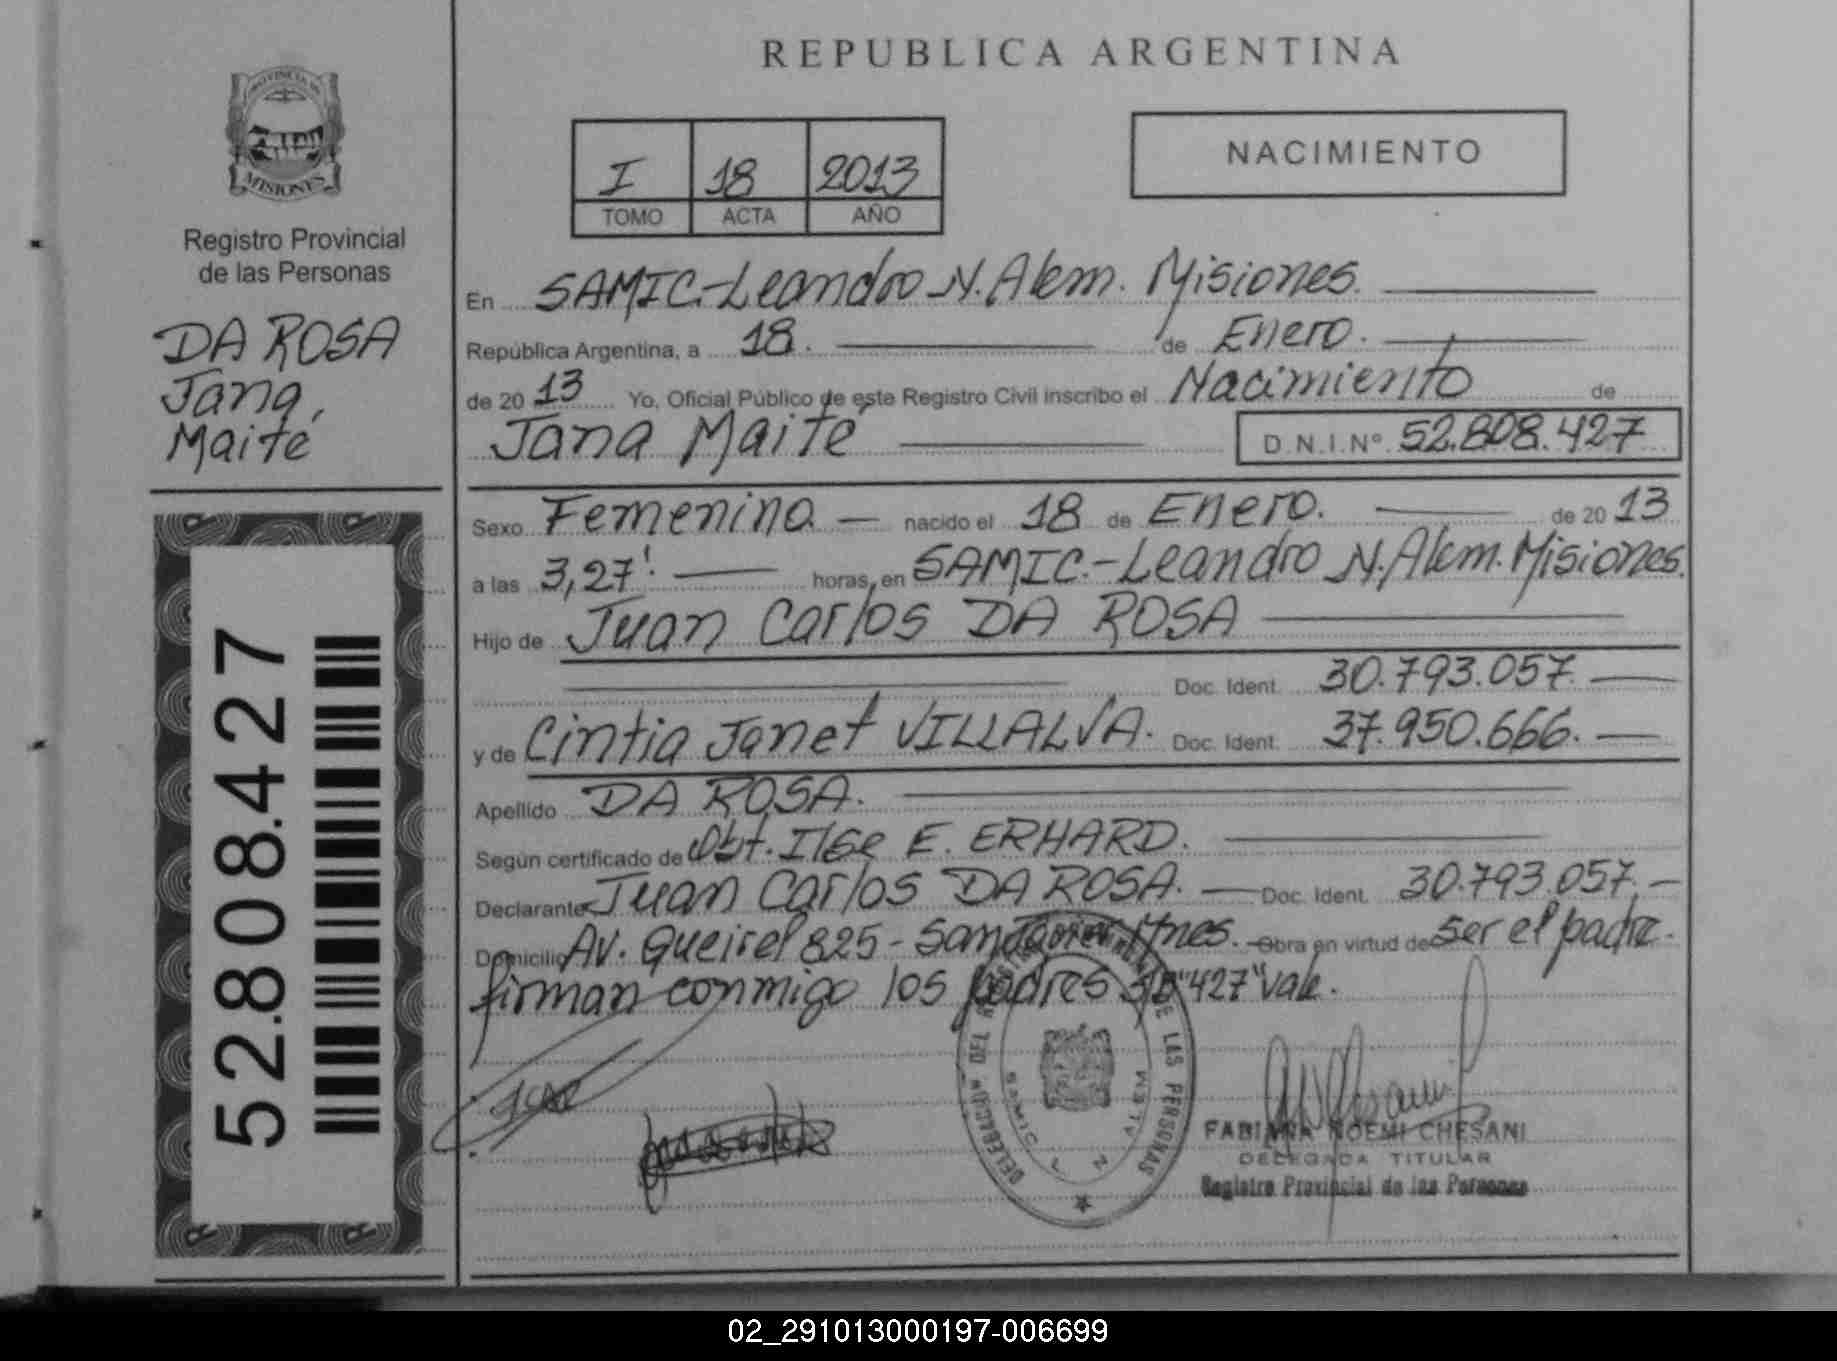 REPUBLICA ARGENTINA
PROVINCIA DE
MISIONES
Registro Provincial
de las Personas
DA ROSA
Jana,
Maité
52.808.427
I 18 2013
TOMO ACTA AÑO
NACIMIENTO
En SAMIC.-Leandro N. Alem. Misiones.
República Argentina, a 18. de Enero.
de 20 13 Yo, Oficial Público de este Registro Civil inscribo el Nacimiento de
Jana Maité D.N.I.Nº 52.808.427
Sexo Femenino nacido el 18 de Enero. de 20 13
a las 3,27'. horas, en SAMIC.-Leandro N. Alem. Misiones.
Hijo de Juan Carlos DA ROSA
Doc. Ident. 30.793.057.
y de Cintia Janet VILLALVA. Doc. Ident. 37.950.666.
Apellido DA ROSA.
Según certificado de Obt. Ilse E. ERHARD.
Declarante Juan Carlos DA ROSA. Doc. Ident. 30.793.057.
Domicilio Av. Queirel 825 - San Javier Mnes. Obra en virtud de ser el padre.
firman conmigo los padres "427" vale.
DEL REGISTRO DE LAS PERSONAS
SAMIC L N ALEM
FABIANA NOEMI CHESANI
DELEGADA TITULAR
Registro Provincial de las Personas
02_291013000197-006699